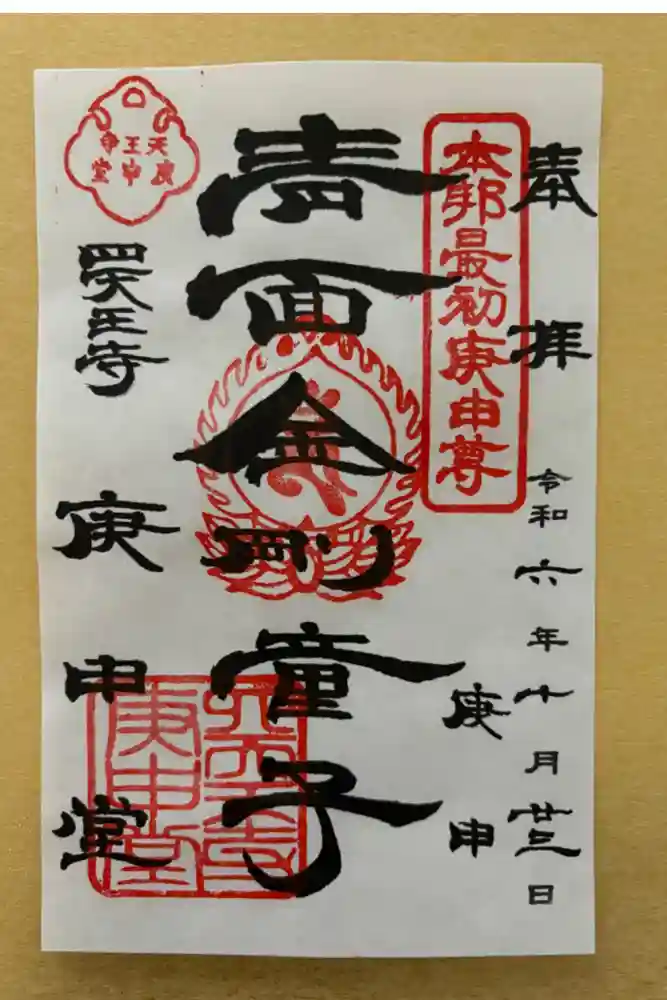 奉拝
令和六年十月廿三日
庚申
本邦最初庚申尊
青面金剛童子
四天王寺
庚申堂
天王寺
庚申堂